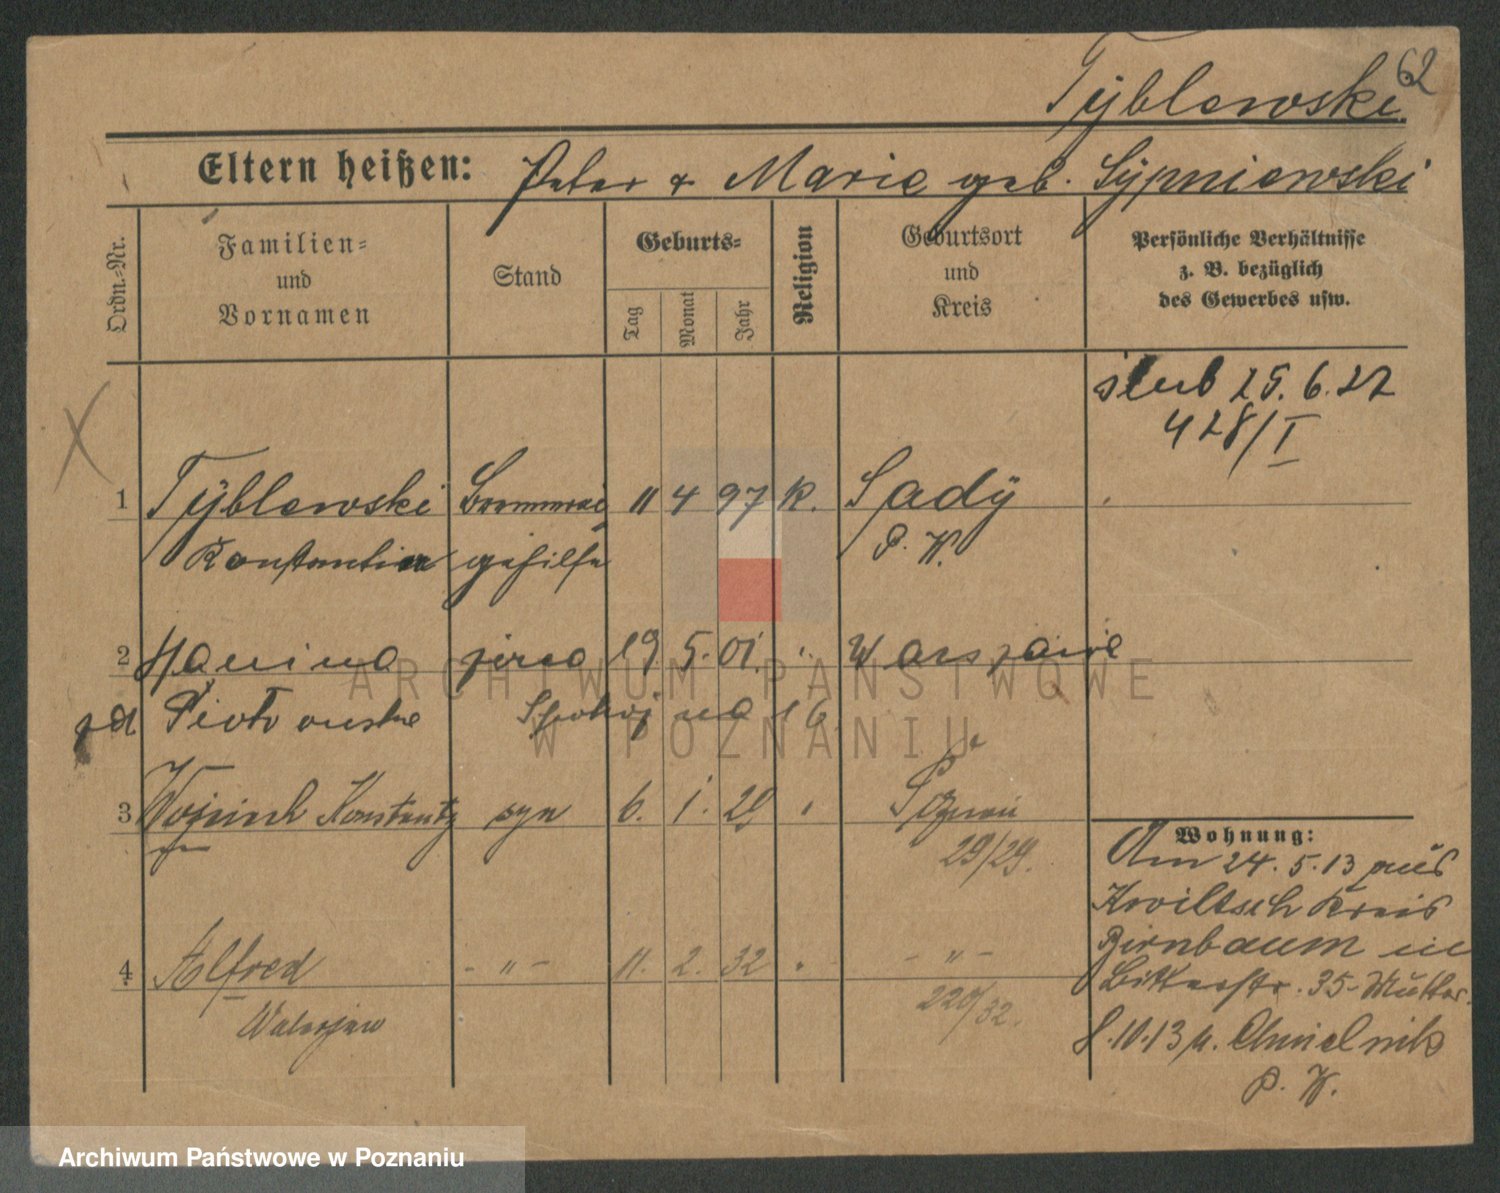 62
Tyblewski.
Eltern heißen: Peter + Marie geb. Sypniewski
Ordn.-Nr.
Familien- und Vornamen
Stand
Geburts-
Tag
Monat
Jahr
Religion
Geburtsort und Kreis
Persönliche Verhältnisse z. B. bezüglich des Gewerbes usw.
ślub 25.6.27
428/I
1 Tyblewski 11 4 97 K. Sady
Konstantin gehilfe P. W.
2 Janina żona 19 5. 01. " Warszawa
zd Piotrowska Spokojna 16
3 Wojciech Konstanty syn 6. 1. 29 " Poznań
29/29.
4 Alfred - " - 11. 2. 32 " - " -
Waleryan 220/32.
Wohnung:
Am 24.5.13 aus
Kwiltsch Kreis
Birnbaum in
Bitterstr. 35 - Mutter.
8.10.13 n. Chmielnik
P. W.
ARCHIWUM PAŃSTWOWE
W POZNANIU
Archiwum Państwowe w Poznaniu